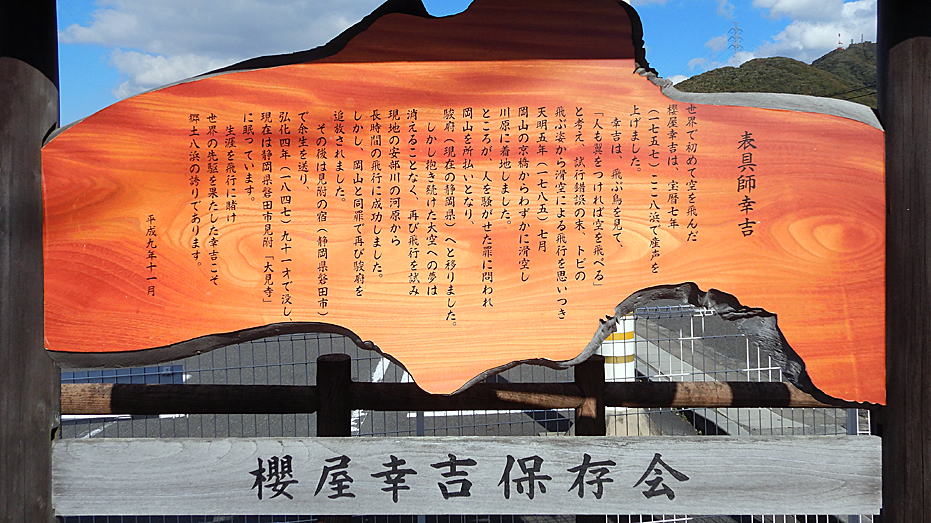 表具師幸吉
世界で初めて空を飛んだ
櫻屋幸吉は、宝暦七年
(一七五七)ここ八浜で産声を
上げました。
幸吉は、飛ぶ鳥を見て、
「人も翼をつければ空を飛べる」
と考え、試行錯誤の末、トビの
飛ぶ姿から滑空による飛行を思いつき
天明五年(一七八五)七月
岡山の京橋からわずかに滑空し
川原に着地しました。
ところが、人を騒がせた罪に問われ
岡山を所払いとなり、
駿府(現在の静岡県)へと移りました。
しかし抱き続けた大空への夢は
消えることなく、再び飛行を試み
現地の安部川の河原から
長時間の飛行に成功しました。
しかし、岡山と同罪で再び駿府を
追放されました。
その後は見附の宿(静岡県磐田市)
で余生を送り、
弘化四年(一八四七)九十一才で没し、
現在は静岡県磐田市見附「大見寺」
に眠っています。
生涯を飛行に賭け
世界の先駆を果たした幸吉こそ
郷土八浜の誇りであります。
平成九年十一月
櫻屋幸吉保存会